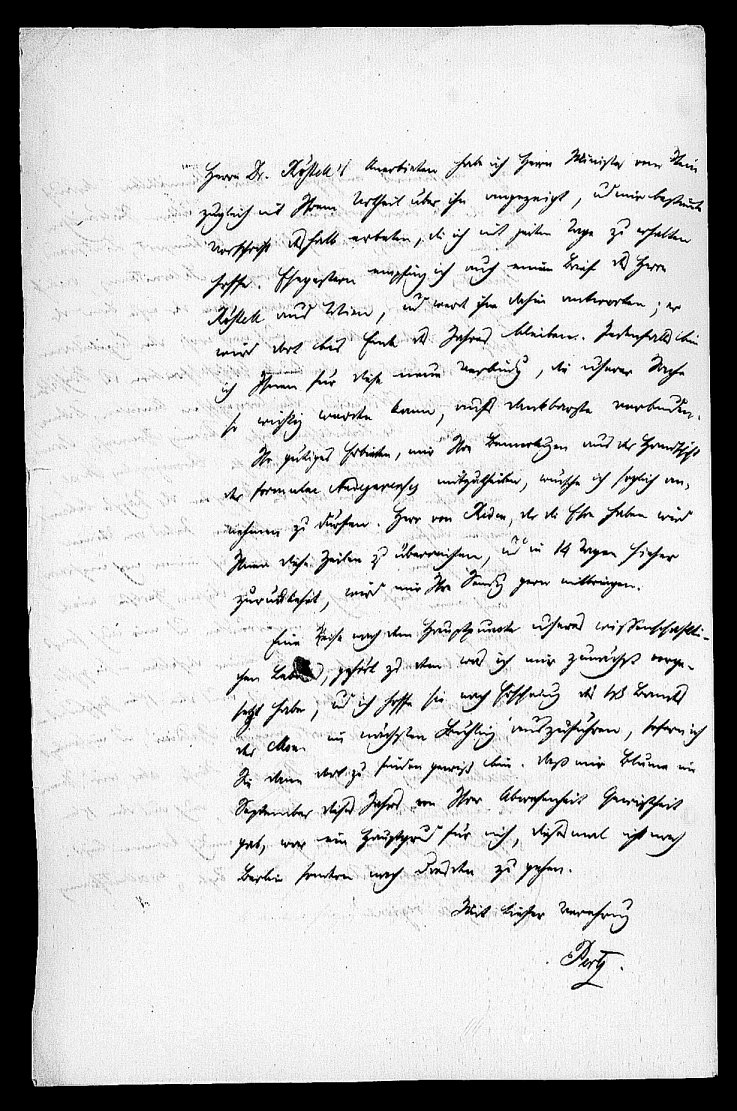 Herrn Dr. Röstell's Anerbieten habe ich Herrn Minister vom Stein
zugleich mit Ihrem Urtheil über ihn angezeigt, und mir bestimmte
Vorschrift deshalb erbeten, die ich mit jedem Tage zu erhalten
hoffe. Ehegestern empfing ich auch einen Brief des Herrn
Röstell aus Wien, und werde ihm dahin antworten; er
wird dort bis Ende des Jahres bleiben. Jedenfalls bin
ich Ihnen für diese neue Verbindung, die unserer Sache
so wichtig werden kann, aufs dankbarste verbunden.
Ihr gütiges Erbieten, mir Ihre Bemerkungen aus der Handschrift
der formulae Andgavenses mitzutheilen, wünsche ich sogleich an-
nehmen zu dürfen. Herr von, der die Ehre haben wird
Ihnen diese Zeilen zu überreichen, und in 14 Tagen hieher
zurückkehrt, wird mir Ihre Sendung gern mitbringen.
Eine Reise nach dem Hauptpunkte unseres wissenschaftli-
chen Lebens, gehört zu dem was ich mir zunächst vorge-
setzt habe, und ich hoffe sie nach Erscheinung des Bandes
der Mon. im nächsten Frühling auszuführen, sofern ich
Sie dann dort zu finden gewiß bin. Daß mir Blume im
September dieses Jahres von Ihrer Abwesenheit Gewißheit
gab, war ein Hauptgrund für mich, diesesmal nicht nach
Berlin sondern nach Dresden zu gehen.
Mit Verehrung
Pertz.